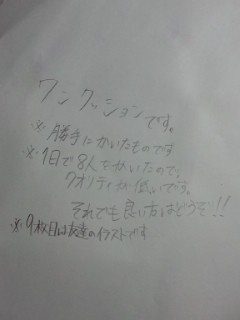 ワンクッションです。
※勝手にかいたものです
※1日で8人をかいたので、
クオリティが低いです。
それでも良い方はどうぞ!!
※9枚目は友達のイラストです